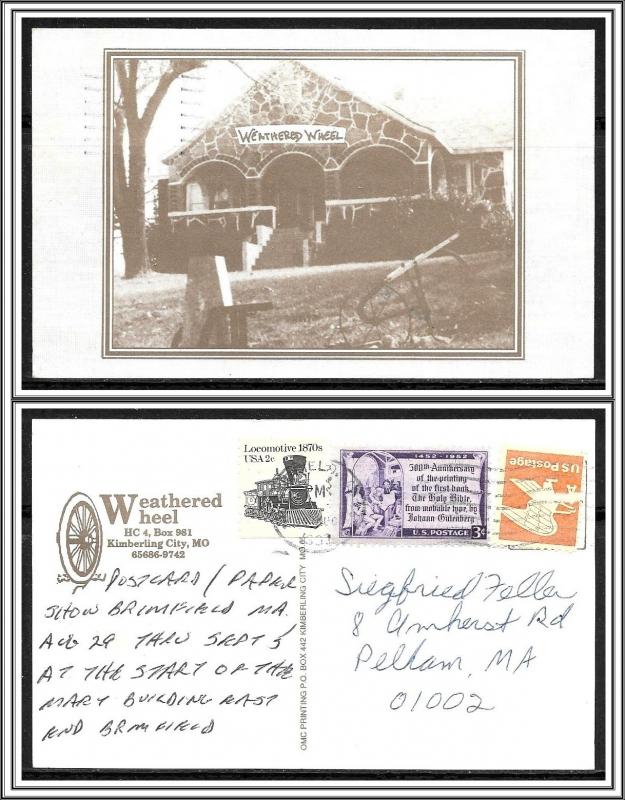 WEATHERED WHEEL
Weathered
Wheel
HC 4, Box 981
Kimberling City, MO
65686-9742
POSTCARD / PAPER
SHOW BRIMFIELD MA.
AUG 29 THRU SEPT 5
AT THE START OF THE
MARY BUILDING EAST
END BRIMFIELD
OMC PRINTING P.O. BOX 442 KIMBERLING CITY MO
Locomotive 1870s
USA 2c
1452-1952
500th Anniversary
of the printing
of the first book,
The Holy Bible,
from movable type, by
Johann Gutenberg
U.S. POSTAGE 3¢
US Postage
Siegfried Feller
8 Amherst Rd
Pelham, MA
01002